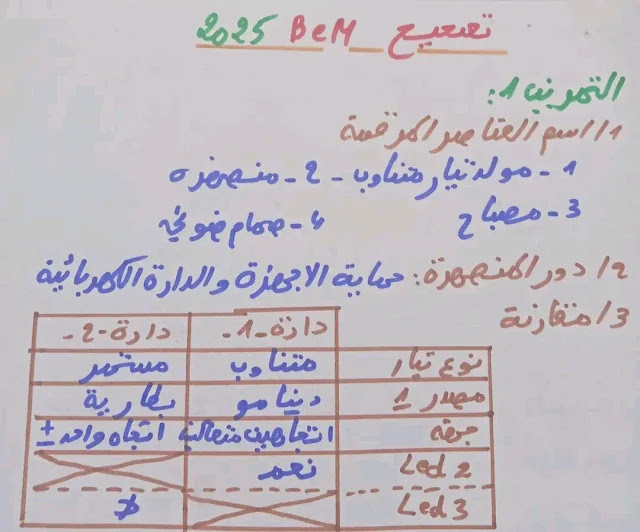 تصحيح BeM 2025
التمرين 1:
1/ اسم العناصر المرقمة
1- مولد تيار متناوب - 2- منصهرة
3- مصباح 4- صمام ضوئي
2/ دور المنصهرة: حماية الاجهزة والدارة الكهربائية
3/ مقارنة
دارة -1- دارة -2-
نوع تيار متناوب مستمر
مصدر 1 دينامو بطارية
جهته اتجاهين متعاكسين اتجاه واحد ±
Led 2 نعم
Led 3